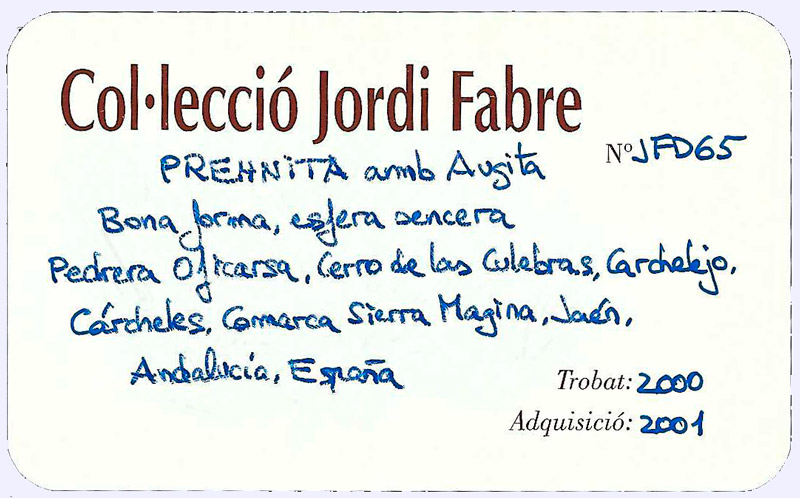 Col·lecció Jordi Fabre
Nº JFD65
PREHNITA amb Augita
Bona forma, esfera sencera
Pedrera Oficarsa, Cerro de las Culebras, Carchelejo,
Cárcheles, Comarca Sierra Magina, Jaén,
Andalucía, España
Trobat: 2000
Adquisició: 2001